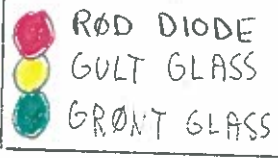 RØD DIODE
GULT GLASS
GRØNT GLASS